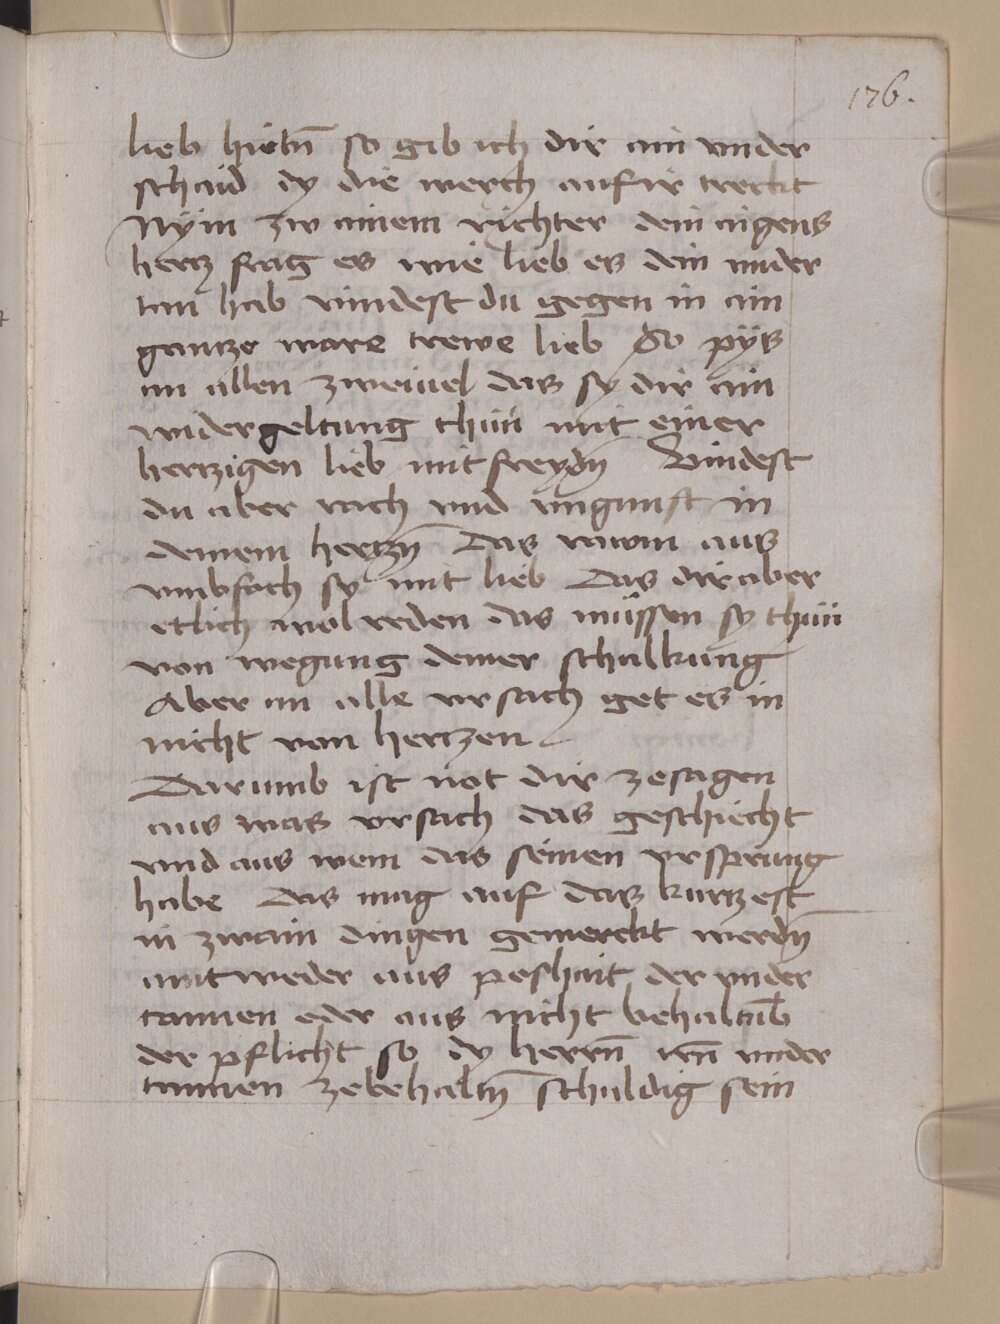 176.
lieb hietn̄ so gib ich dir ain vnder
schaid dy die werch auf ir trecht
Nym zw ainem richter dein aigens
hertz frag es wie lieb es dein vnder
tan hab vindest du gegen in ain
gantze ware trewe lieb So pÿs
an allen zweiuel das sy dir ain
widergeltung thuu mit einer
hertzigen lieb mit freydn̄ Vindest
du aber rach vnd vngunst in
deinem hertzn̄ Das rawm aus
vmbfach sy mit lieb Das dir aber
etlich wol reden das müssen sy thuu
von wegung deiner schalkung
Aber an alle vrsach get es in
nicht von hertzen
Darumb ist not dir zesagen
aus was vrsach das geschiecht
vnd aus wem das seinen vrsprung
habe Das mag auf das kurtzest
in zwain dingen gemerckt werdn̄
aintweder aus poshait der vnder
tannen oder aus nicht behaltnus
der pflicht so dy herrn̄ irn̄ vnder
tannen zebehaltn̄ schuldig sein